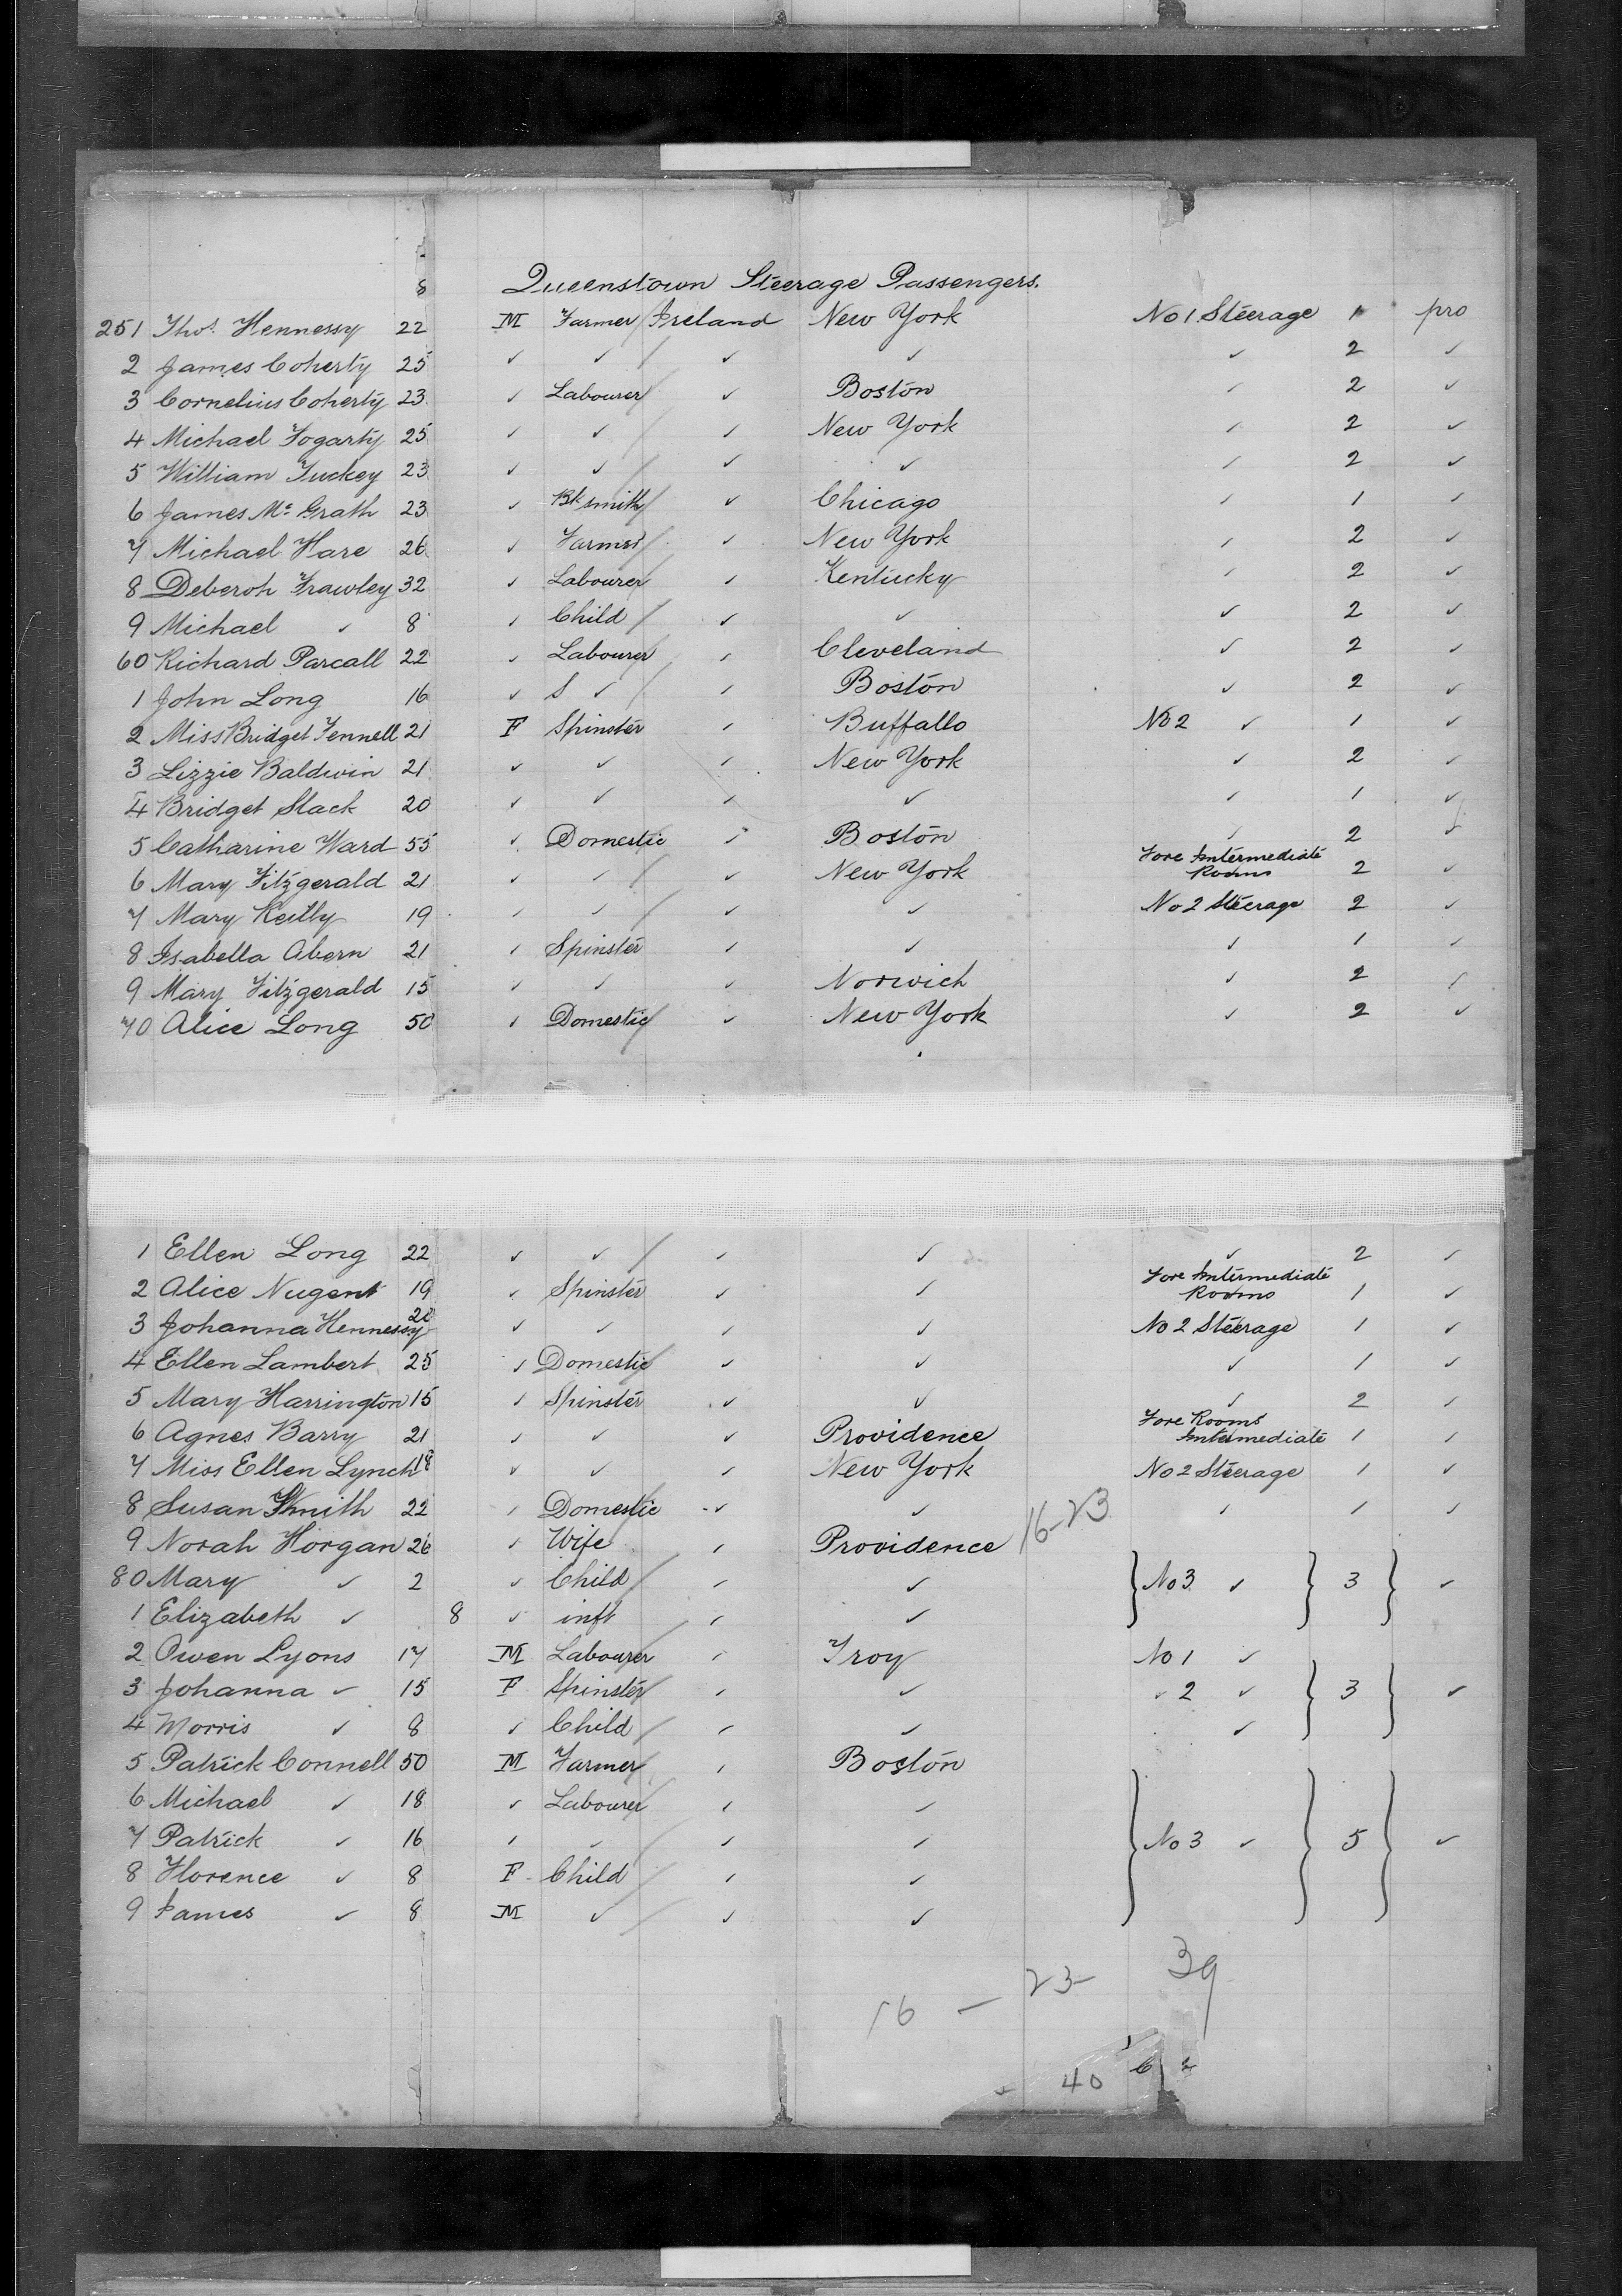 8 Queenstown Steerage Passengers.
251 Thos. Hennessy 22 M Farmer Ireland New York No 1 Steerage 1 pro
2 James Coherty 25 ✓ ✓ ✓ ✓ ✓ 2 ✓
3 Cornelius Coherty 23 ✓ Labourer ✓ Boston ✓ 2 ✓
4 Michael Fogarty 25 ✓ ✓ ✓ New York ✓ 2 ✓
5 William Tuckey 23 ✓ ✓ ✓ ✓ ✓ 2 ✓
6 James Mc Grath 23 ✓ Bksmith ✓ Chicago ✓ 1 ✓
7 Michael Hare 26 ✓ Farmer ✓ New York ✓ 2 ✓
8 Deberoh Frawley 32 ✓ Labourer ✓ Kentucky ✓ 2 ✓
9 Michael ✓ 8 ✓ Child ✓ ✓ ✓ 2 ✓
60 Richard Parcall 22 ✓ Labourer ✓ Cleveland ✓ 2 ✓
1 John Long 16 ✓ S ✓ ✓ Boston ✓ 2 ✓
2 Miss Bridget Fennell 21 F Spinster ✓ Buffallo No 2 ✓ 1 ✓
3 Lizzie Baldwin 21 ✓ ✓ ✓ New York ✓ 2 ✓
4 Bridget Slack 20 ✓ ✓ ✓ ✓ ✓ 1 ✓
5 Catharine Ward 55 ✓ Domestic ✓ Boston ✓ 2 ✓
6 Mary Fitzgerald 21 ✓ ✓ ✓ New York Fore Intermediate Rooms 2 ✓
7 Mary Keilly 19 ✓ ✓ ✓ ✓ No 2 Steerage 2 ✓
8 Isabella Abern 21 ✓ Spinster ✓ ✓ ✓ 1 ✓
9 Mary Fitzgerald 15 ✓ ✓ ✓ Norwich ✓ 2 ✓
70 Alice Long 50 ✓ Domestic ✓ New York ✓ 2 ✓
1 Ellen Long 22 ✓ ✓ ✓ ✓ ✓ 2 ✓
2 Alice Nugent 19 ✓ Spinster ✓ ✓ Fore Intermediate Rooms 1 ✓
3 Johanna Hennessy 20 ✓ ✓ ✓ ✓ No 2 Steerage 1 ✓
4 Ellen Lambert 25 ✓ Domestic ✓ ✓ ✓ 1 ✓
5 Mary Harrington 15 ✓ Spinster ✓ ✓ ✓ 2 ✓
6 Agnes Barry 21 ✓ ✓ ✓ Providence Fore Rooms Intermediate 1 ✓
7 Miss Ellen Lynch 18 ✓ ✓ ✓ New York No 2 Steerage 1 ✓
8 Susan Smith 22 ✓ Domestic ✓ ✓ 16-23 ✓ 1 ✓
9 Norah Horgan 26 ✓ Wife ✓ Providence
80 Mary ✓ 2 ✓ Child ✓ ✓ No 3 ✓ 3 ✓
1 Elizabeth ✓ 8 ✓ inft ✓ ✓
2 Owen Lyons 17 M Labourer ✓ Troy No 1 ✓
3 Johanna ✓ 15 F Spinster ✓ ✓ ✓ 2 ✓ 3 ✓
4 Morris ✓ 8 ✓ Child ✓ ✓ ✓
5 Patrick Connell 50 M Farmer ✓ Boston
6 Michael ✓ 18 ✓ Labourer ✓ ✓
7 Patrick ✓ 16 ✓ ✓ ✓ ✓ No 3 ✓ 5 ✓
8 Florence ✓ 8 F Child ✓ ✓
9 James ✓ 8 M ✓ ✓ ✓
16 - 23 39
40 6 2